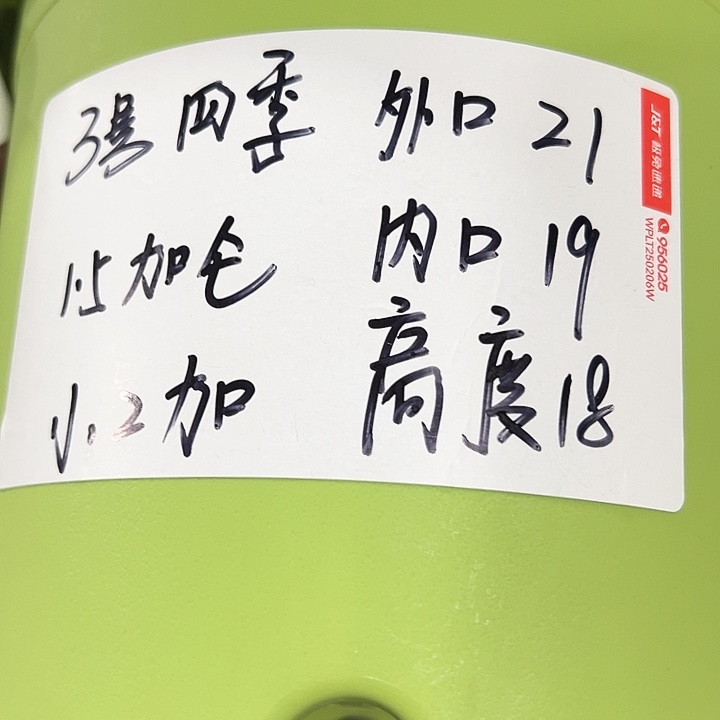 3号四季 外口21
1.5加仑 内口19
小.2加 高度18
J&T 极兔速递
956025
WPLT250206W